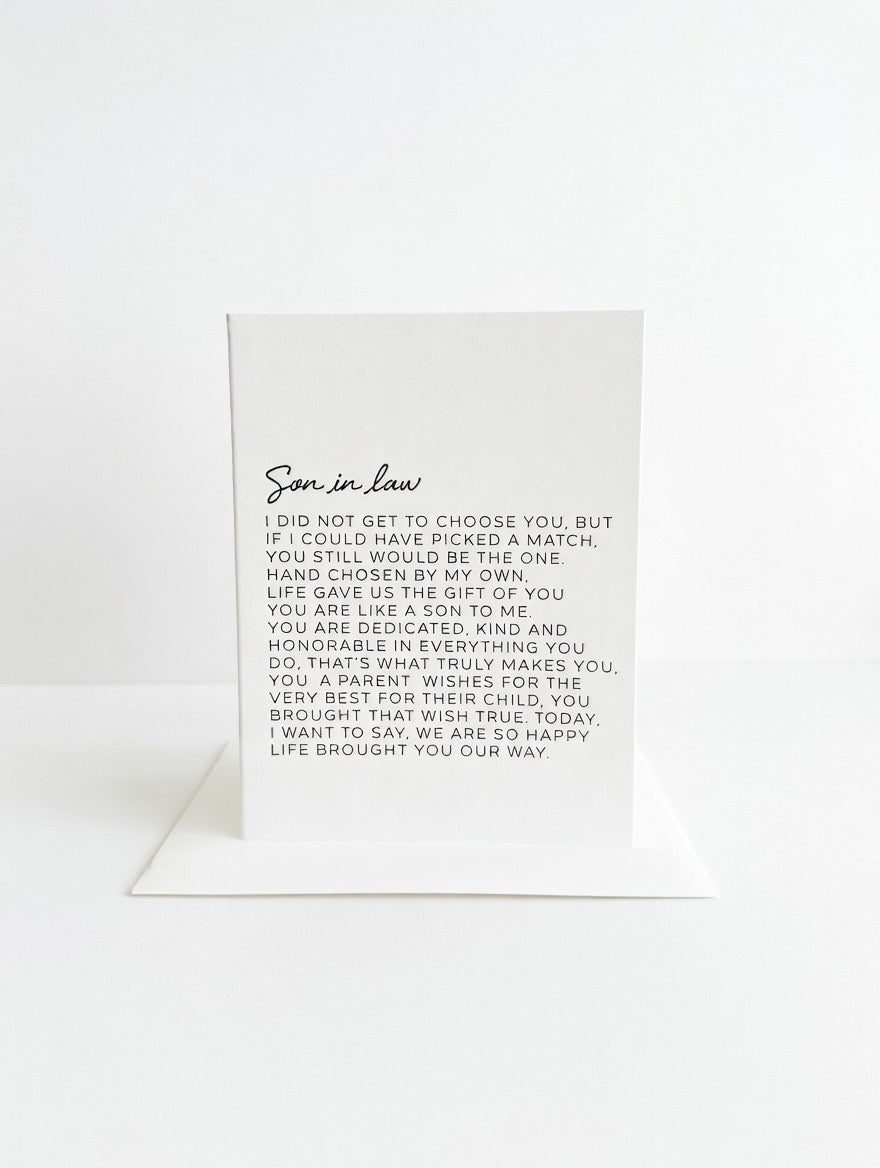 Son in law
I DID NOT GET TO CHOOSE YOU, BUT
IF I COULD HAVE PICKED A MATCH,
YOU STILL WOULD BE THE ONE.
HAND CHOSEN BY MY OWN,
LIFE GAVE US THE GIFT OF YOU
YOU ARE LIKE A SON TO ME.
YOU ARE DEDICATED, KIND AND
HONORABLE IN EVERYTHING YOU
DO, THAT'S WHAT TRULY MAKES YOU,
YOU A PARENT WISHES FOR THE
VERY BEST FOR THEIR CHILD, YOU
BROUGHT THAT WISH TRUE. TODAY,
I WANT TO SAY, WE ARE SO HAPPY
LIFE BROUGHT YOU OUR WAY.